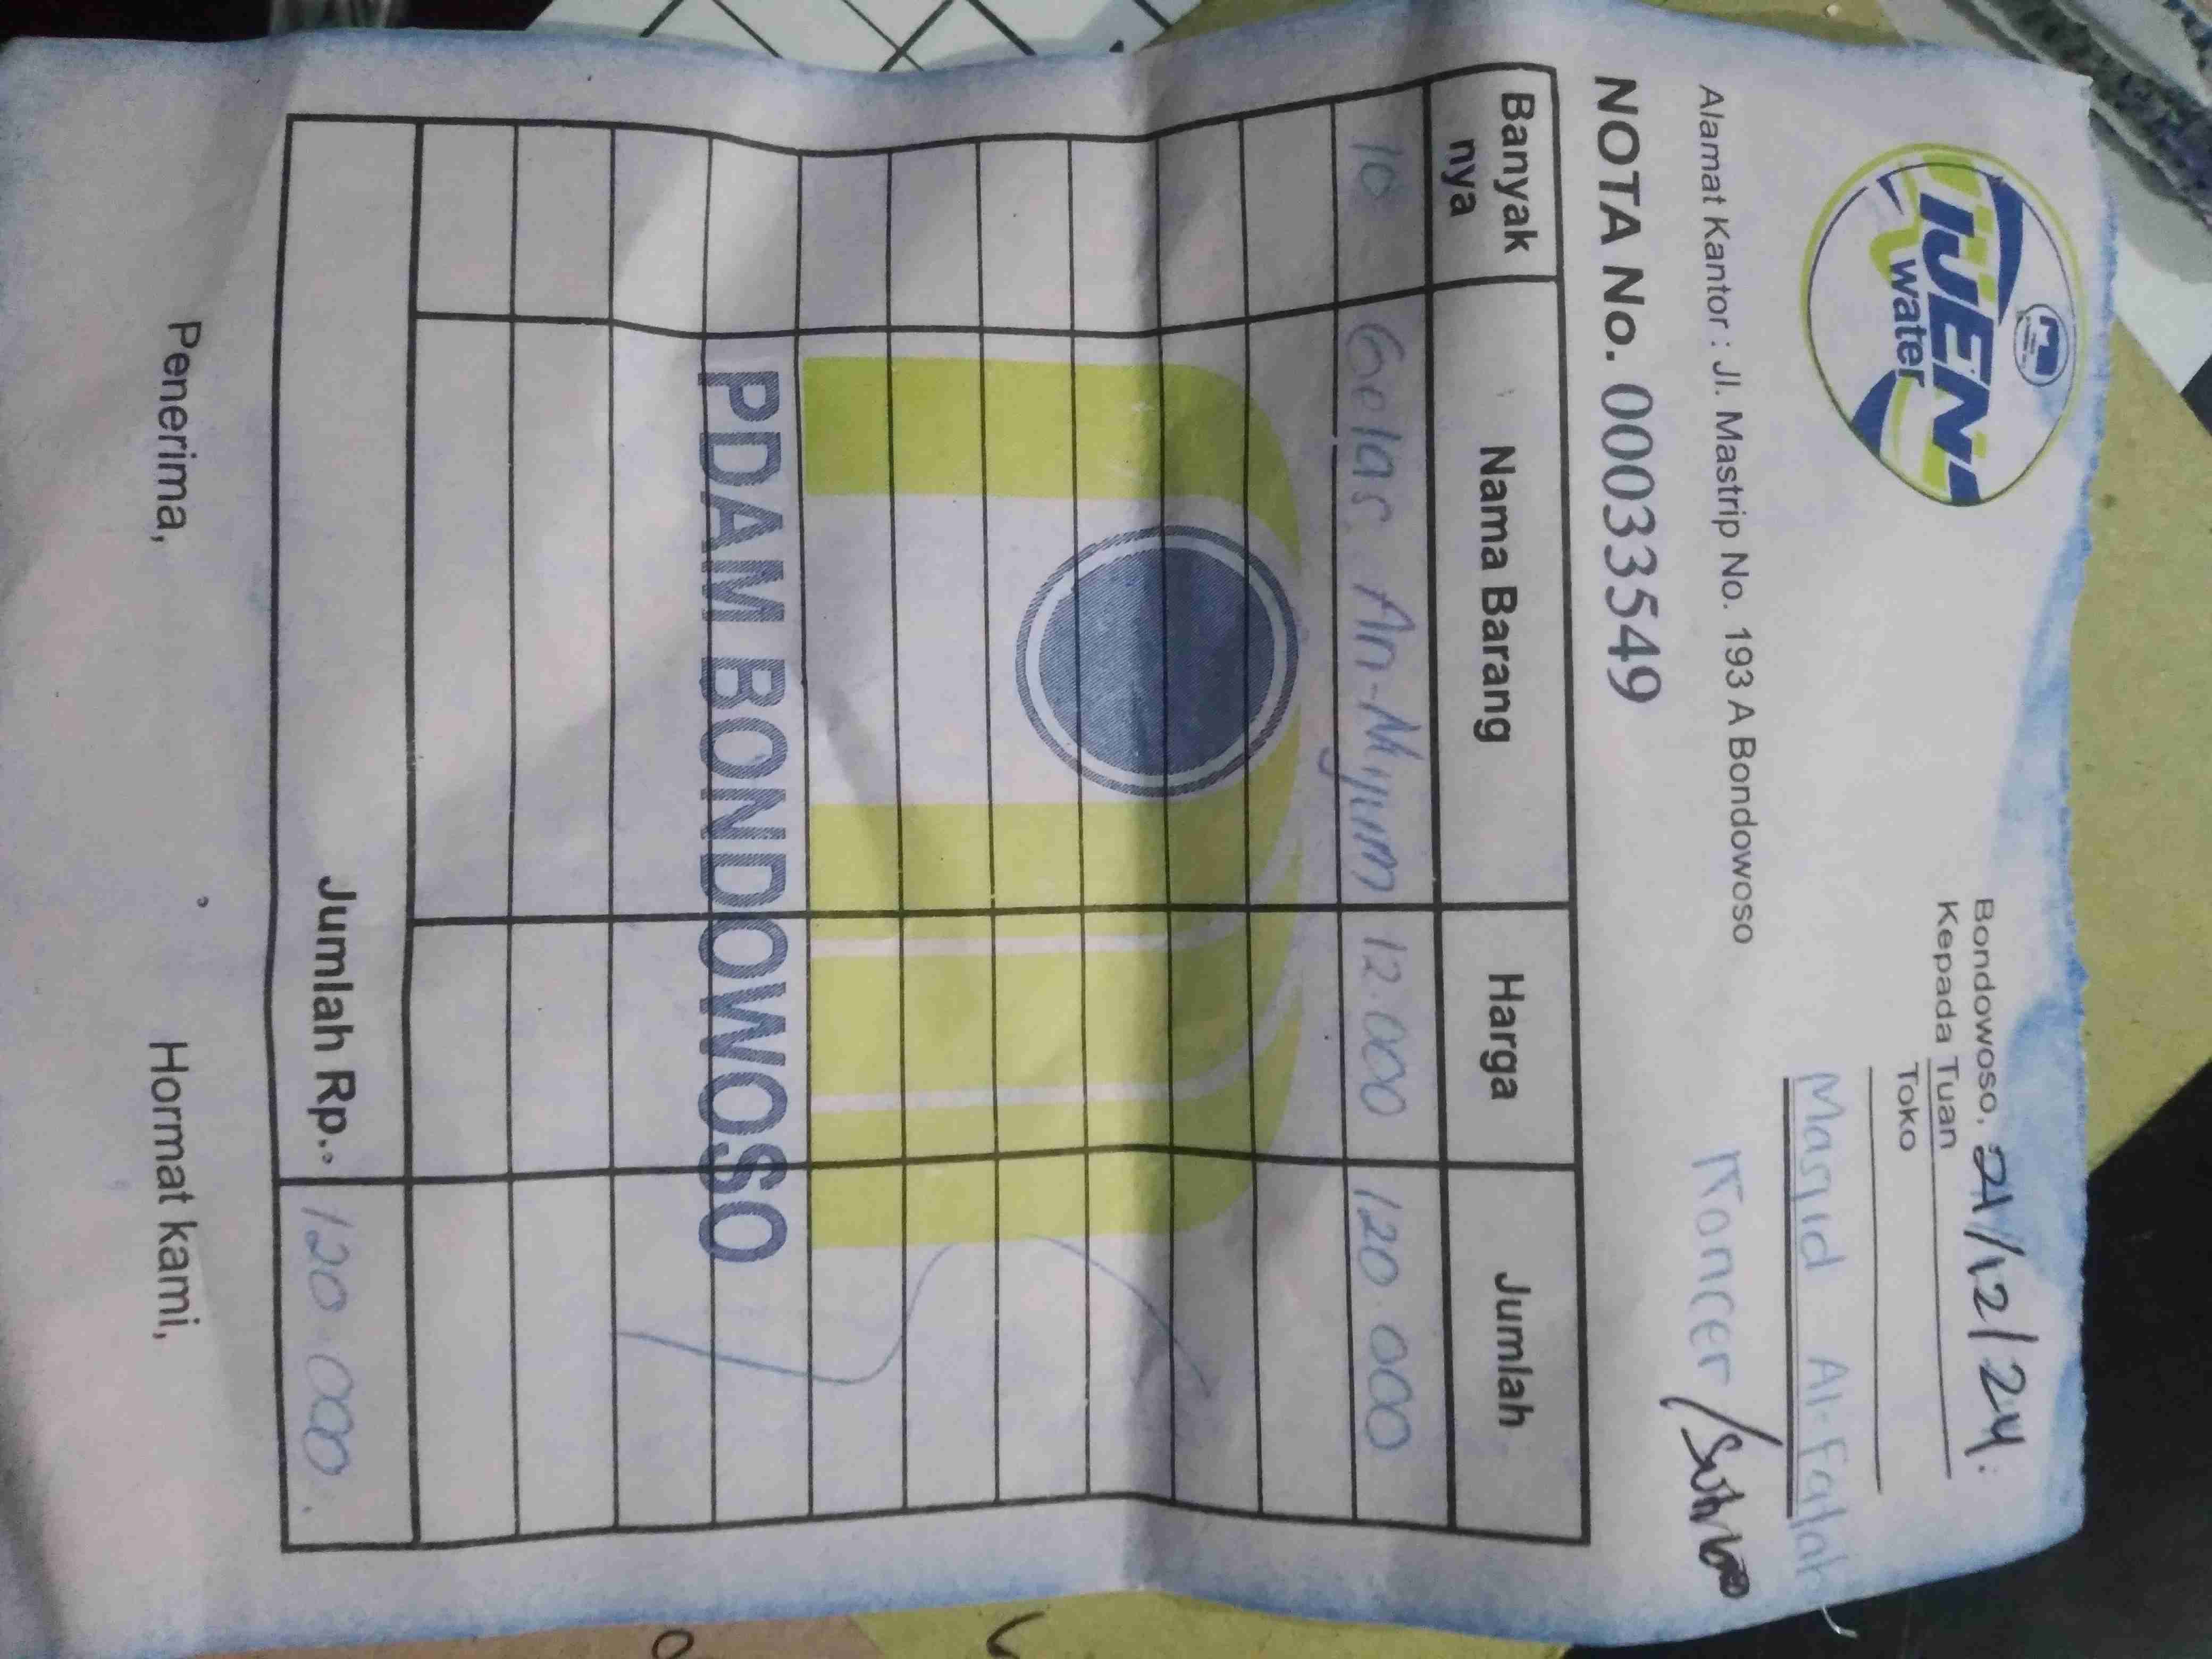 IJEN
water
Bondowoso, 21/12/24.
Kepada Tuan
Toko
Masjid Al-Falah
Koncer /
Alamat Kantor : Jl. Mastrip No. 193 A Bondowoso
NOTA No. 00033549
Banyak nya Nama Barang Harga Jumlah
10 Gelas An-Nujum 12.000 120.000
PDAM BONDOWOSO
Jumlah Rp. 120.000.
Penerima, Hormat kami,